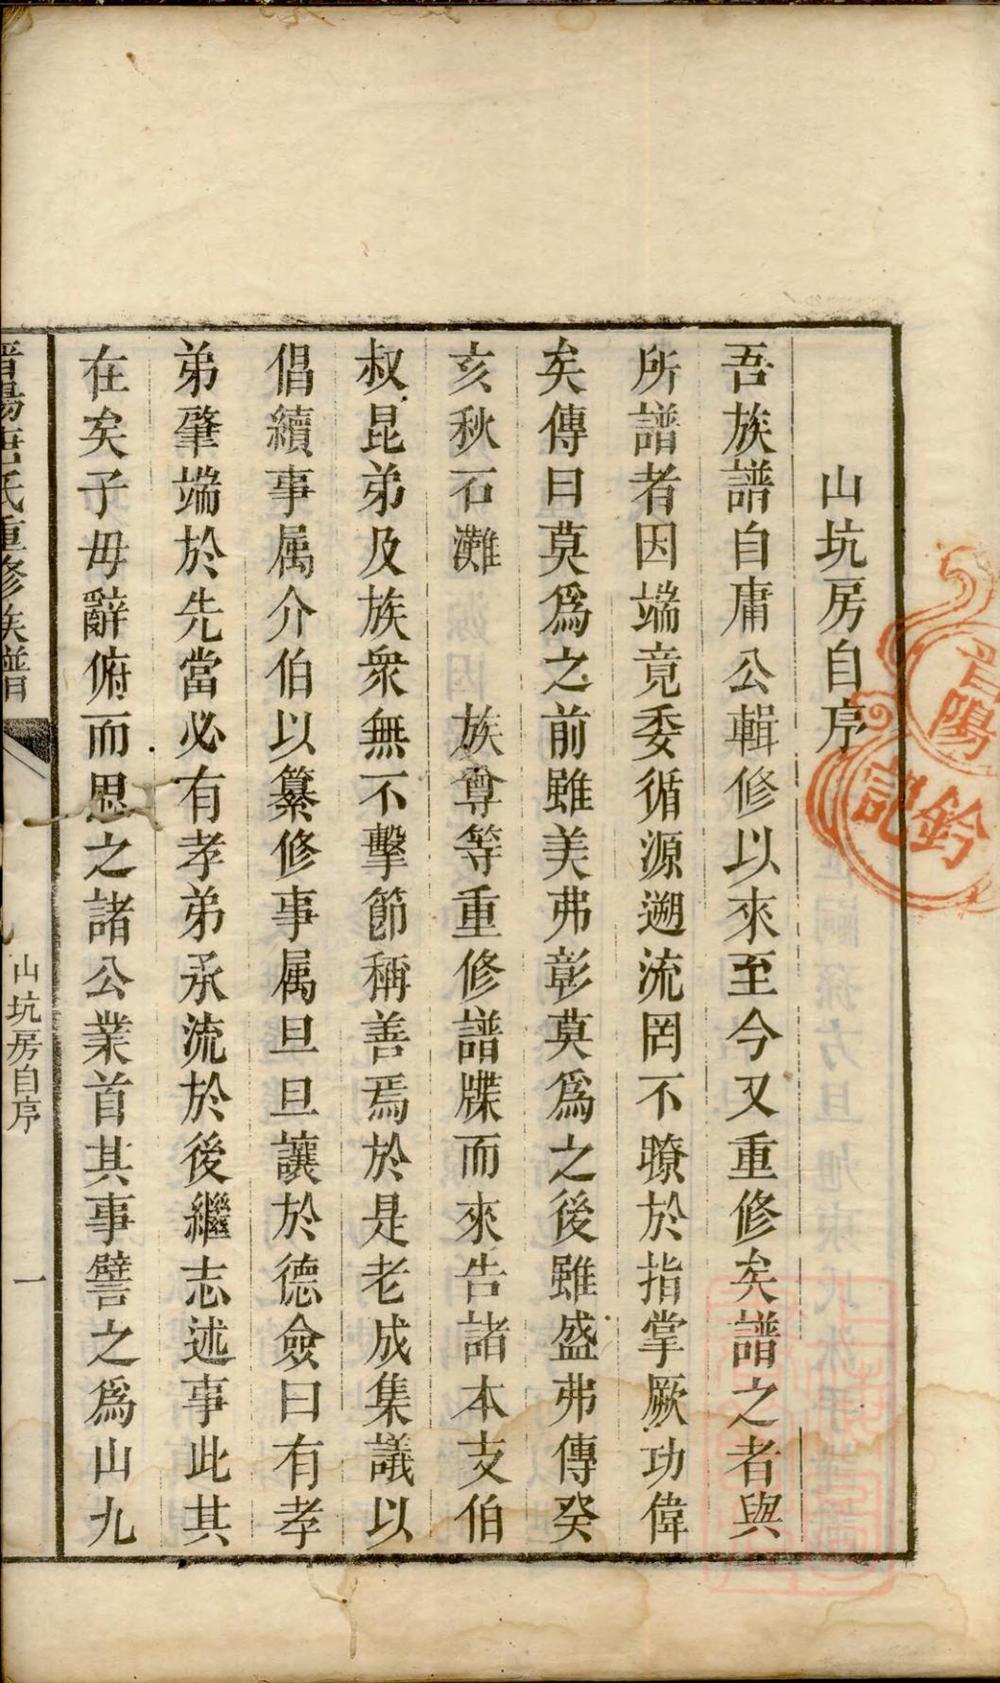 山坑房自序
吾族譜自庸公輯修以來至今又重修矣譜之者與
所譜者因端竟委循源遡流罔不瞭於指掌厥功偉
矣傳曰莫爲之前雖美弗彰莫爲之後雖盛弗傳癸
亥秋石灘 族尊等重修譜牒而來告諸本支伯
叔昆弟及族衆無不擊節稱善焉於是老成集議以
倡續事属介伯以纂修事属旦旦讓於德僉曰有孝
弟肇端於先當必有孝弟承流於後繼志述事此其
在矣子毋辭俯而思之諸公業首其事譬之爲山九
晋陽唐氏重修族譜
山坑房自序
一
晋陽
鈐記